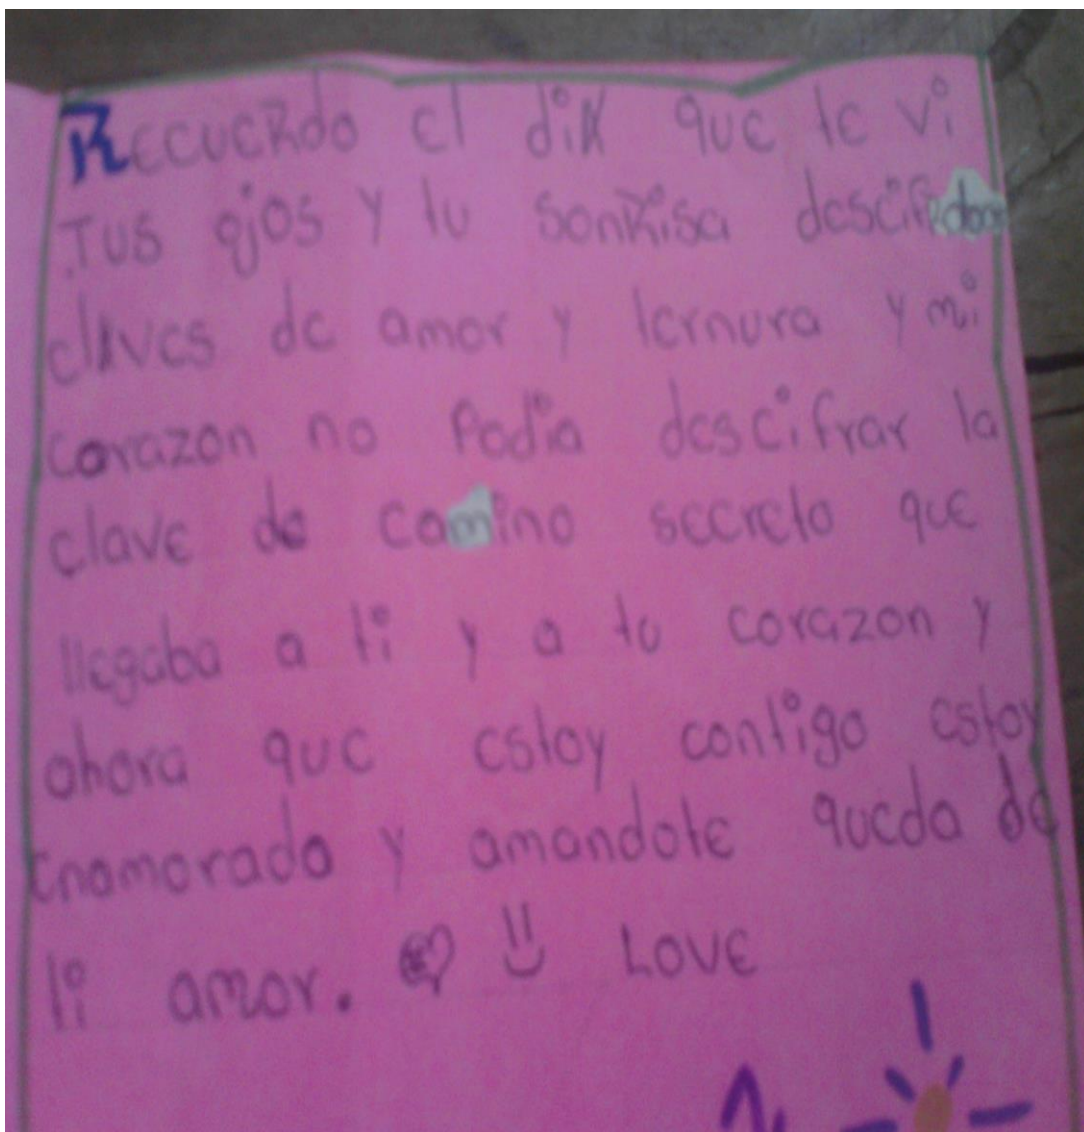 Recuerdo el día que te vi
Tus ojos y tu sonrisa
claves de amor y ternura y mi
corazon no Podia descifrar la
clave de camino secreto que
llegaba a ti y a tu corazon y
ahora que estoy contigo estoy
enamorado y amandote queda de
ti amor. LOVE